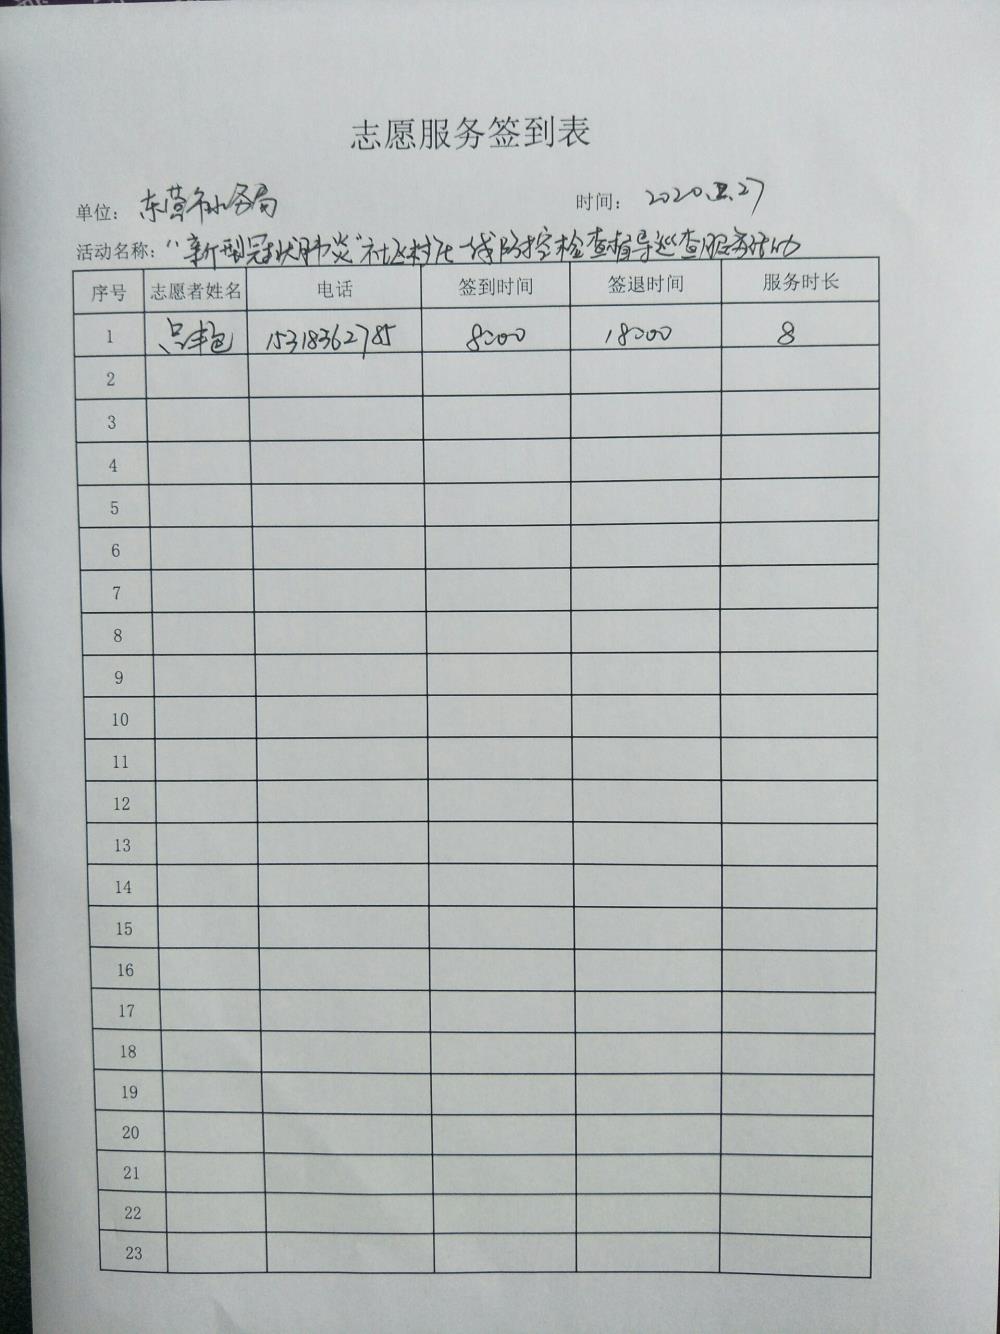 志愿服务签到表
单位：东营市水务局 时间：2020.2.27
活动名称："新型冠状肺炎"社区村庄一线防控检查督导巡查服务活动
序号 志愿者姓名 电话 签到时间 签退时间 服务时长
1 15318362785 8:00 18:00 8
2
3
4
5
6
7
8
9
10
11
12
13
14
15
16
17
18
19
20
21
22
23